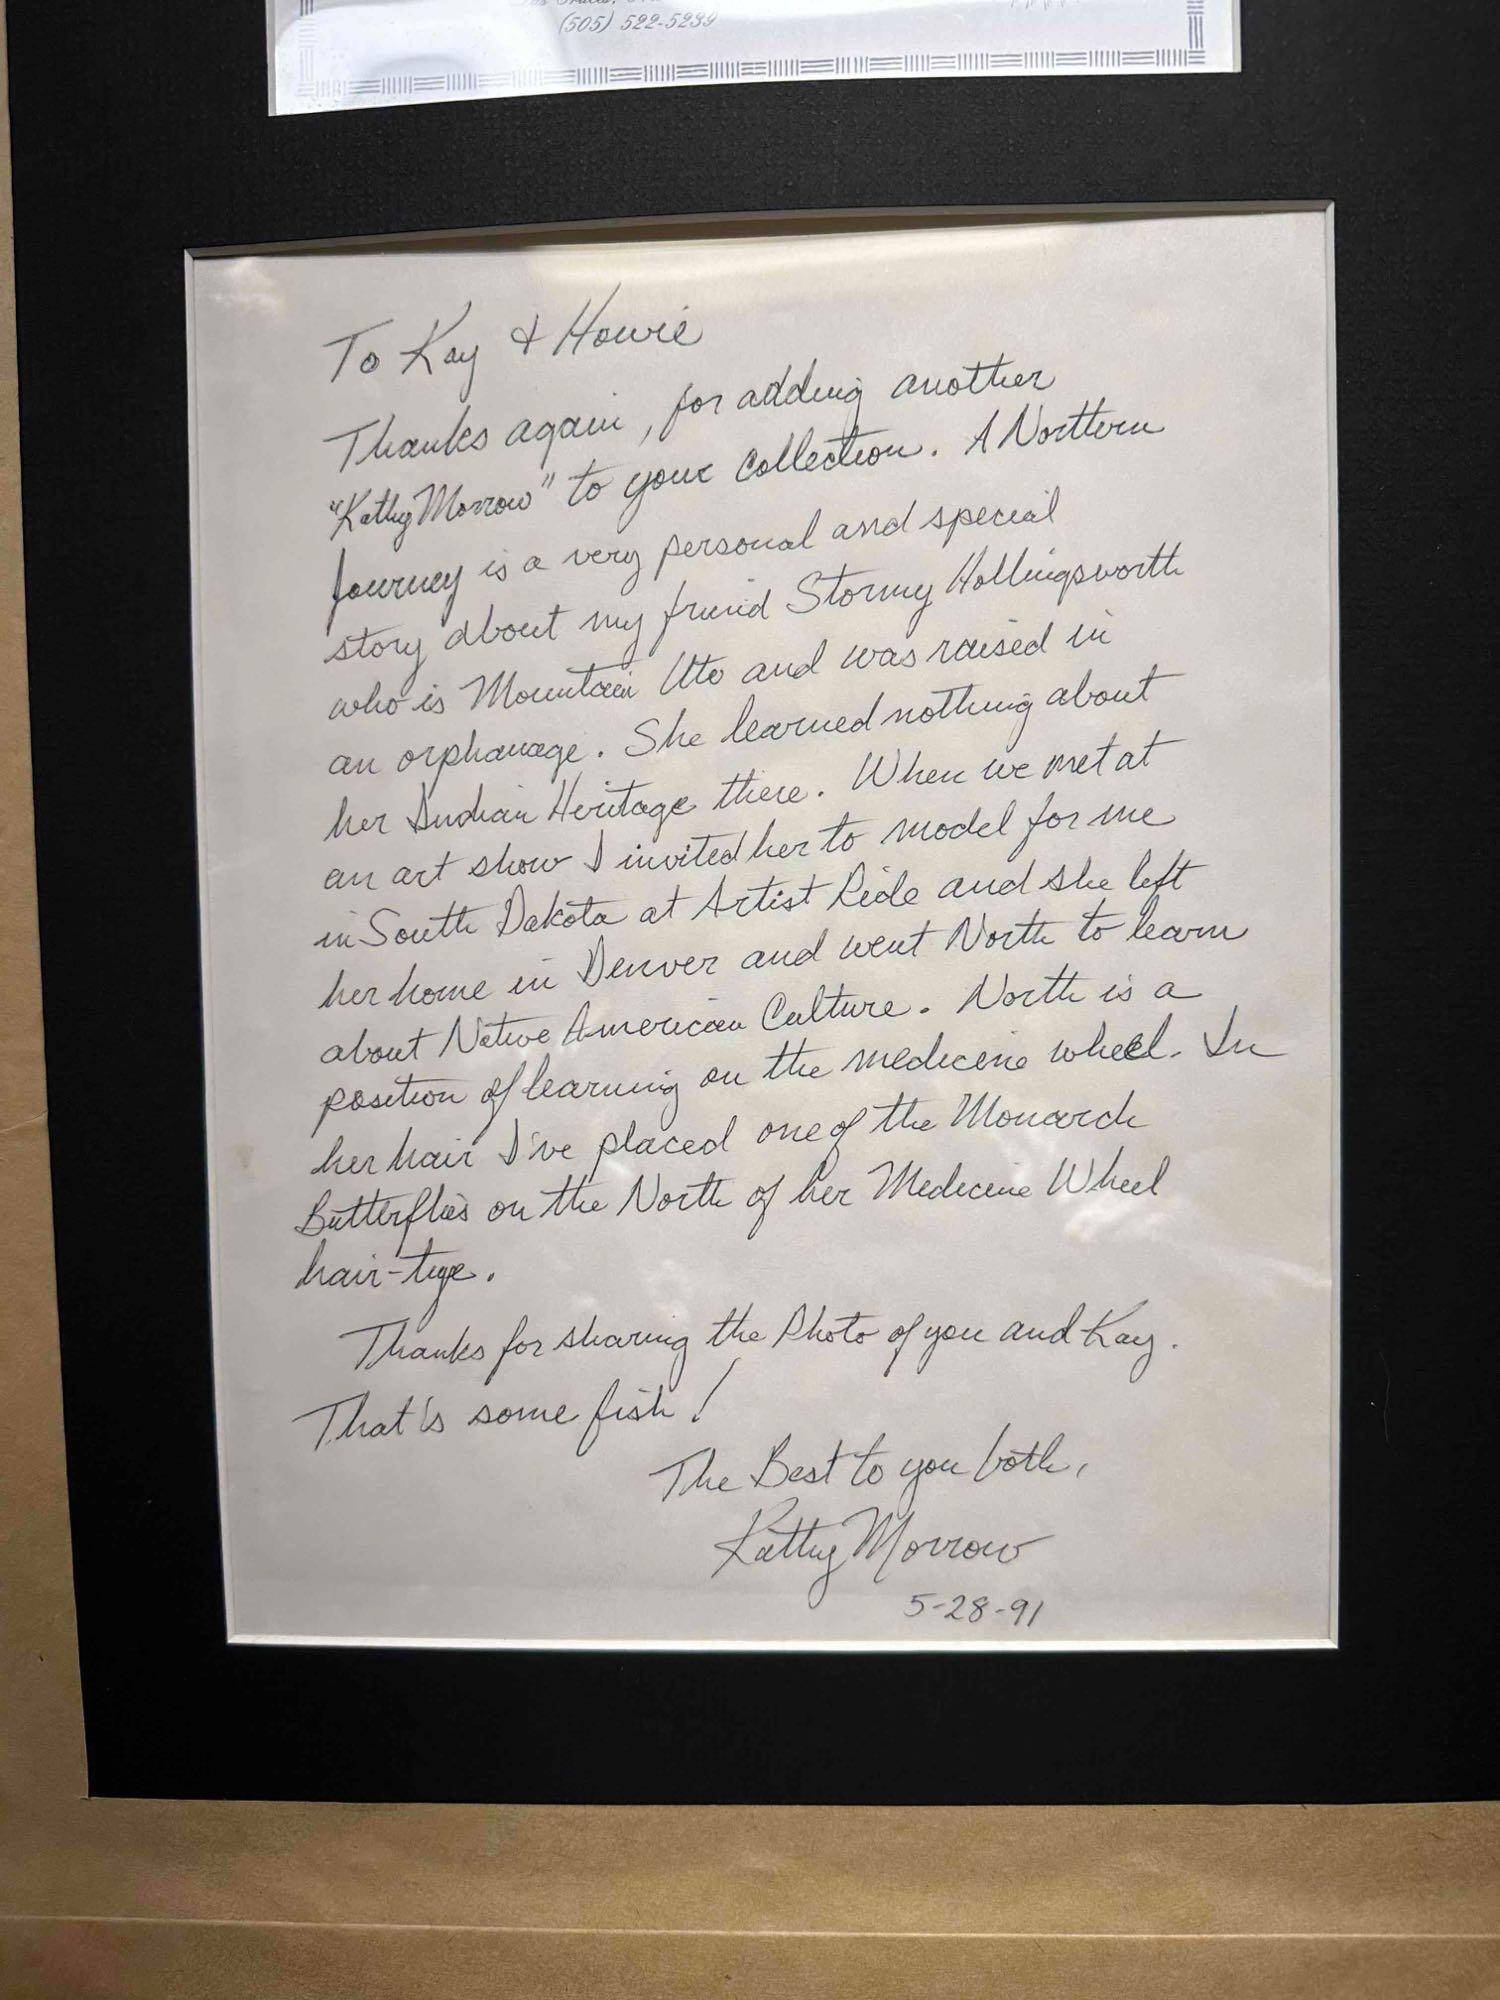 (505) 522-5239
To Kay & Howie
Thanks again, for adding another
"Kathy Morrow" to your collection. A Northern
Journey is a very personal and special
story about my friend Stormy Hollingsworth
who is Mountain Ute and was raised in
an orphanage. She learned nothing about
her Indian Heritage there. When we met at
an art show I invited her to model for me
in South Dakota at Artist Ride and she left
her home in Denver and went North to learn
about Native American Culture. North is a
position of learning on the medicine wheel. In
her hair I've placed one of the Monarch
Butterflies on the North of her Medicine Wheel
hair-tye.
Thanks for sharing the Photo of you and Kay.
That's some fish!
The Best to you both,
Kathy Morrow
5-28-91